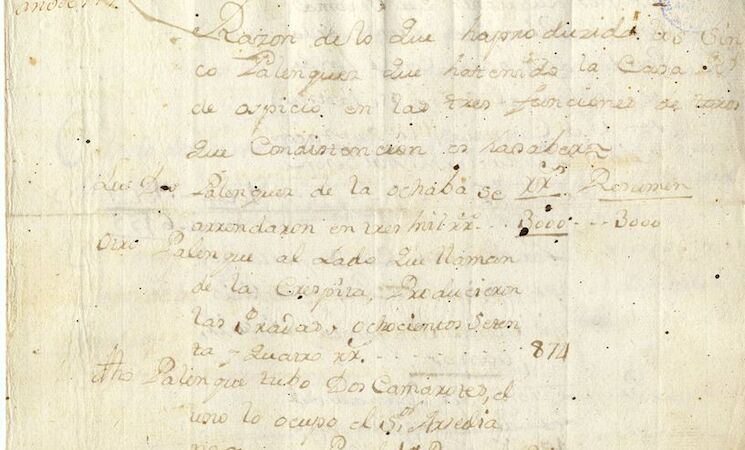 Razon de lo que ha producido los Sin
co Palenques que ha tenido la Casa Rl
de aspicio en las tres funciones de toros
que Con distencion es hasaber
Los Dos Palenques de la ochaba se rrs. Resumen
arrendaron en tres mil rrs... 3000 --- 3000
Otro Palengue al Lado que llaman
de la Crespita, Producieron
las Gradas, ochocientos seten
ta y quatro rrs. - - - - - 874
dho Palenque tubo Dos Camarotes, el
uno lo ocupo el Sr. Arsedia